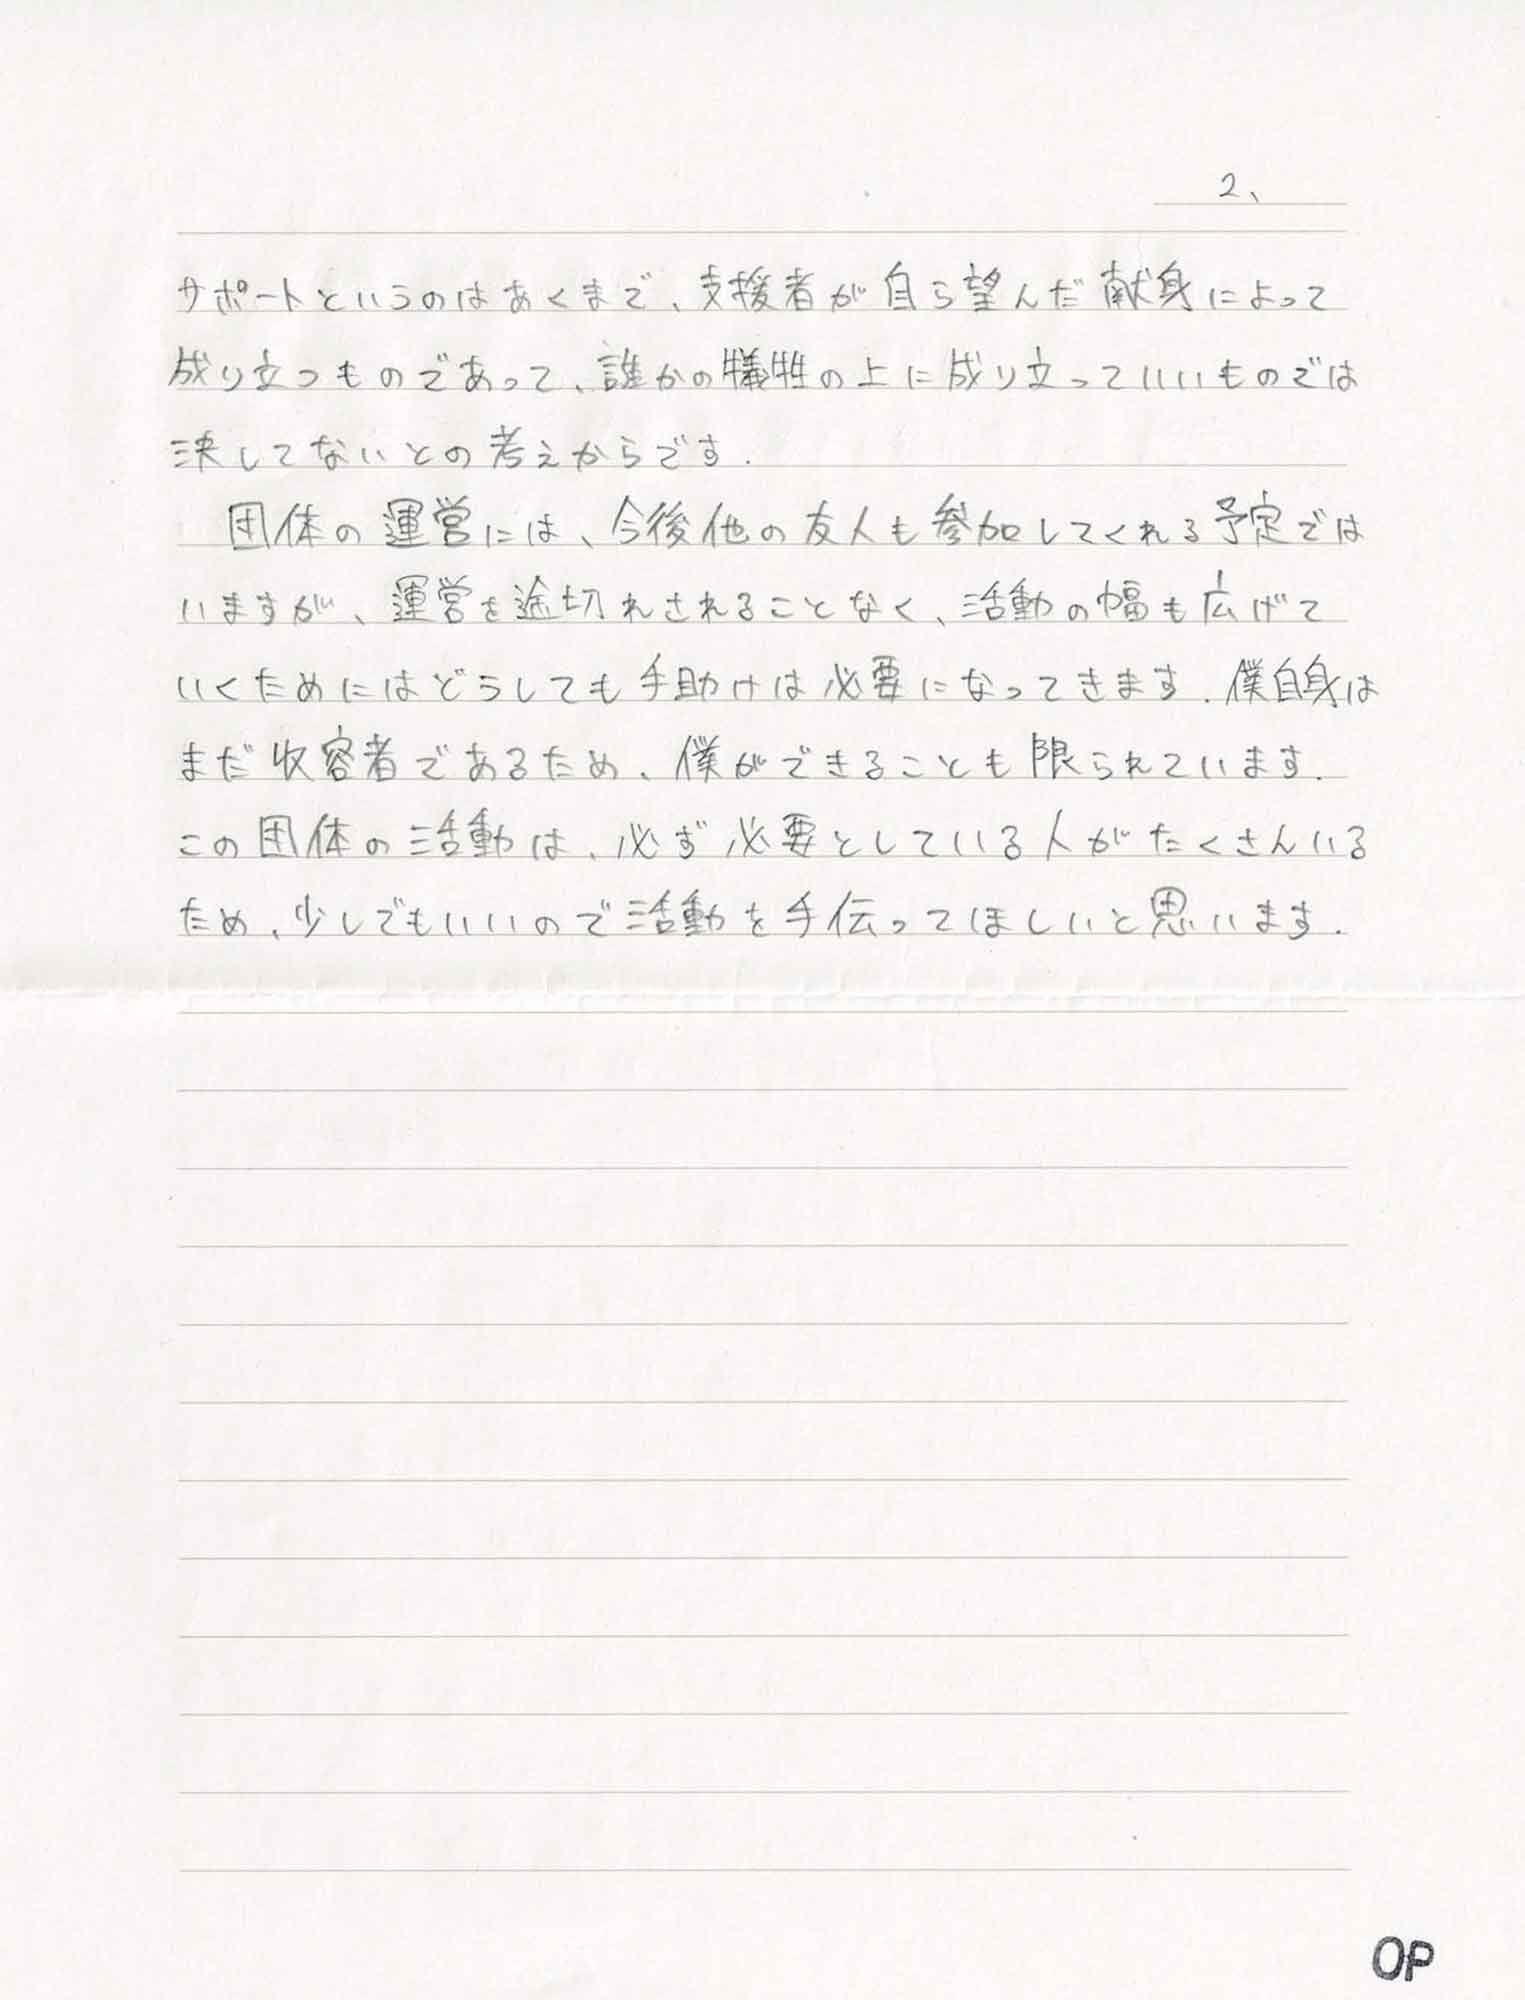 2、
サポートというのはあくまで、支援者が自ら望んだ献身によって
成り立つものであって、誰かの犠牲の上に成り立っていいものでは
決してないとの考えからです.
団体の運営には、今後他の友人も参加してくれる予定では
いますが、運営を途切れされることなく、活動の幅も広げて
いくためにはどうしても手助けは必要になってきます.僕自身は
まだ収容者であるため、僕ができることも限られています.
この団体の活動は、必ず必要としている人がたくさんいる
ため、少しでもいいので活動を手伝ってほしいと思います.
OP